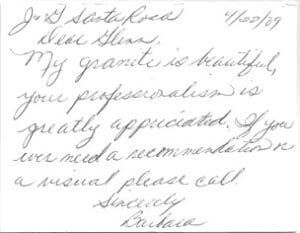 J&G Santa Rosa 4/22/09
Dear Glenn,
My granite is beautiful,
your professionalism is
greatly appriciated. If you
ever need a recommendation or
a visual please call.
Sincerely
Barbara